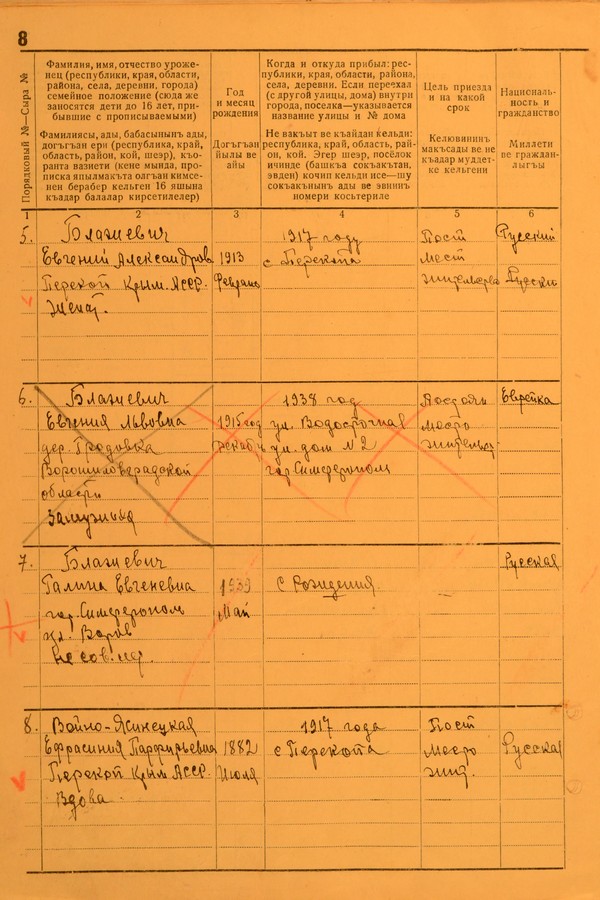 8
Порядковый №—Сыра №
Фамилия, имя, отчество уроже-
нец (республики, края, области,
района, села, деревни, города)
семейное положение (сюда же
заносятся дети до 16 лет, при-
бывшие с прописываемыми)
Фамилиясы, ады, бабасынынъ ады,
догъгъан ери (республика, край,
область, район, кой, шеэр), къо-
ранта вазиети (кене мында, про-
писка япылмакъта олгъан кимсе-
нен берабер кельген 16 яшына
къадар балалар кирсетилелер)
Год
и месяц
рождения
Догъгъан
йылы ве
айы
Когда и откуда прибыл: рес-
публики, края, области, района,
села, деревни. Если переехал
(с другой улицы, дома) внутри
города, поселка—указывается
название улицы и № дома
Не вакъыт ве къайдан кельди:
республика, край, область, рай-
он, кой. Эгер шеэр, посёлок
ичинде (башкъа сокъакътан,
эвден) кочип кельди исе—шу
сокъакънынъ ады ве эвнинъ
номери косьтериле
Цель приезда
и на какой
срок
Келювининъ
макъсады ве не
къадар муддет-
ке кельгени
Националь-
ность и
гражданство
Миллети
ве граждан-
лыгъы
1 2 3 4 5 6
5. Блазиевич 1917 году Пост Русский
Евгений Александров 1913 с Перекопа мест
Перекоп Крым.Асср. Февраль Русски
Женат.
6. 1938 год Еврейка
Евгения Львовна 1915 год ул. Водосточная место
дер. Гродовка декабрь ул. дом № 2
Ворошиловградской гор Симферополь
области
Замужняя
7. Блазиевич Русская
Галина Евгеневна 1939 с Рождения
гор. Симферополь Май
ул. Воров
Не сов. лет.
8. Войно-Ясинецкая 1917 года Пост
Ефрасиния Парфирьевна 1882 с Перекопа место Русская
Перекоп Крым Асср. Июля жит.
Вдова.